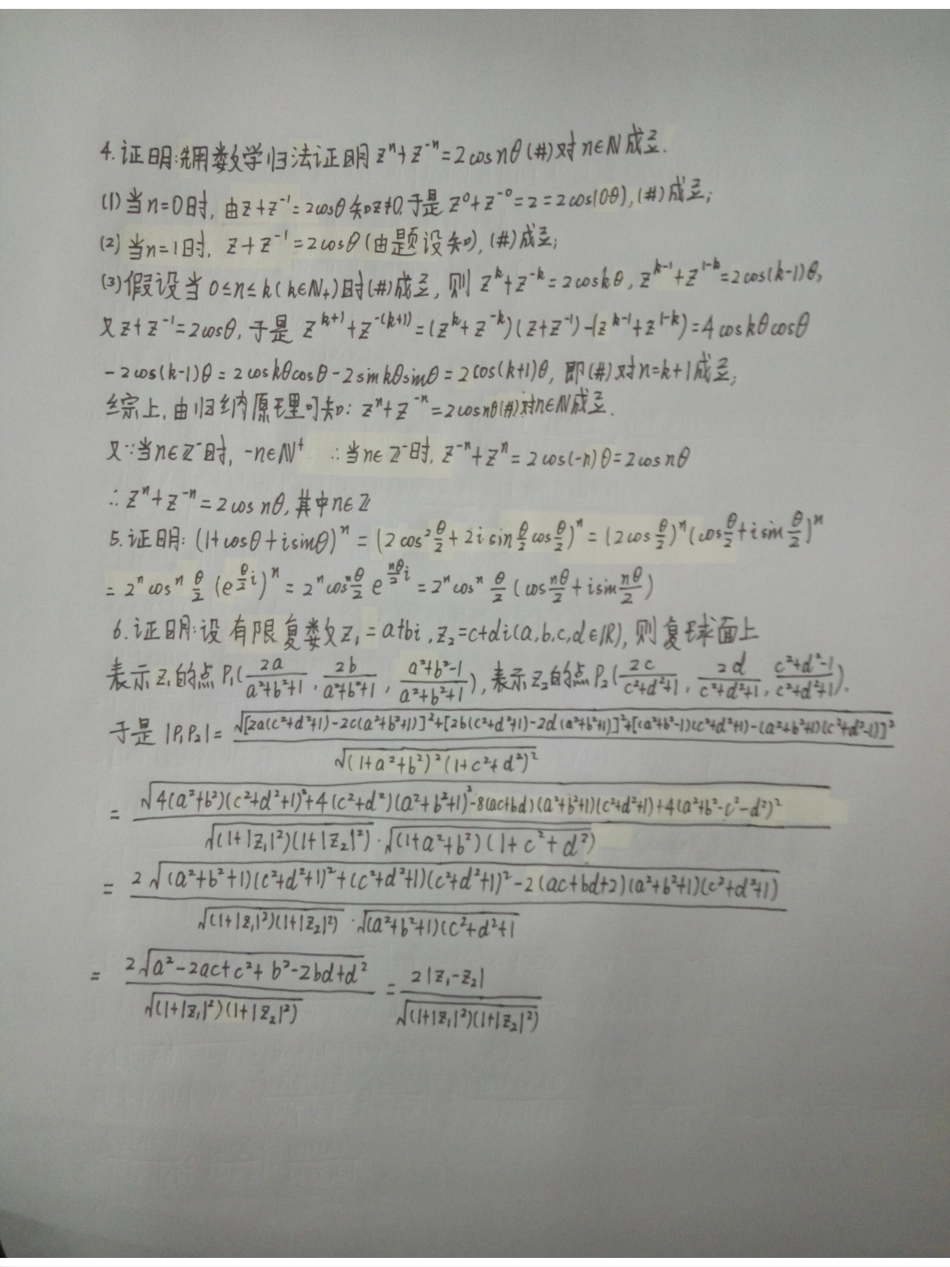 4.证明:先用数学归法证明 zⁿ+z⁻ⁿ=2cosnθ(#)对n∈N成立.
(1)当n=0时, 由z+z⁻¹=2cosθ知z≠0.于是 z⁰+z⁻⁰=2=2cos(0θ),(#)成立;
(2)当n=1时, z+z⁻¹=2cosθ(由题设知),(#)成立;
(3)假设当 0≤n≤k(k∈N₊)时(#)成立, 则 zᵏ+z⁻ᵏ=2coskθ, zᵏ⁻¹+z¹⁻ᵏ=2cos(k-1)θ,
又z+z⁻¹=2cosθ, 于是 zᵏ⁺¹+z⁻⁽ᵏ⁺¹⁾=(zᵏ+z⁻ᵏ)(z+z⁻¹)-(zᵏ⁻¹+z¹⁻ᵏ)=4coskθcosθ
-2cos(k-1)θ=2coskθcosθ-2sinkθsinθ=2cos(k+1)θ, 即(#)对n=k+1成立;
综上,由归纳原理可知: zⁿ+z⁻ⁿ=2cosnθ(#)对n∈N成立.
又∵当n∈Z⁻时, -n∈N⁺ ∴当n∈Z⁻时, z⁻ⁿ+zⁿ=2cos(-n)θ=2cosnθ
∴zⁿ+z⁻ⁿ=2cosnθ,其中n∈Z
5.证明: (1+cosθ+isinθ)ⁿ=(2cos²θ/2+2isinθ/2cosθ/2)ⁿ=(2cosθ/2)ⁿ(cosθ/2+isinθ/2)ⁿ
=2ⁿcosⁿθ/2(e^(θ/2 i))ⁿ=2ⁿcosⁿθ/2 e^(nθ/2 i)=2ⁿcosⁿθ/2(cos nθ/2+isin nθ/2)
6.证明:设有限复数z₁=a+bi,z₂=c+di(a,b,c,d∈R),则复球面上
表示z₁的点P₁(2a/(a²+b²+1), 2b/(a²+b²+1), (a²+b²-1)/(a²+b²+1)),表示z₂的点P₂(2c/(c²+d²+1), 2d/(c²+d²+1), (c²+d²-1)/(c²+d²+1)).
于是|P₁P₂|=√([2a(c²+d²+1)-2c(a²+b²+1)]²+[2b(c²+d²+1)-2d(a²+b²+1)]²+[(a²+b²-1)(c²+d²+1)-(a²+b²+1)(c²+d²-1)]²)/√((1+a²+b²)²(1+c²+d²)²)
=√(4(a²+b²)(c²+d²+1)²+4(c²+d²)(a²+b²+1)²-8(ac+bd)(a²+b²+1)(c²+d²+1)+4(a²+b²-c²-d²)²)/(√((1+|z₁|²)(1+|z₂|²))·√((1+a²+b²)(1+c²+d²)))
=2√((a²+b²+1)(c²+d²+1)²+(c²+d²+1)(c²+d²+1)²-2(ac+bd+2)(a²+b²+1)(c²+d²+1))/(√((1+|z₁|²)(1+|z₂|²))·√((a²+b²+1)(c²+d²+1)
=2√(a²-2ac+c²+b²-2bd+d²)/√((1+|z₁|²)(1+|z₂|²))=2|z₁-z₂|/√((1+|z₁|²)(1+|z₂|²))